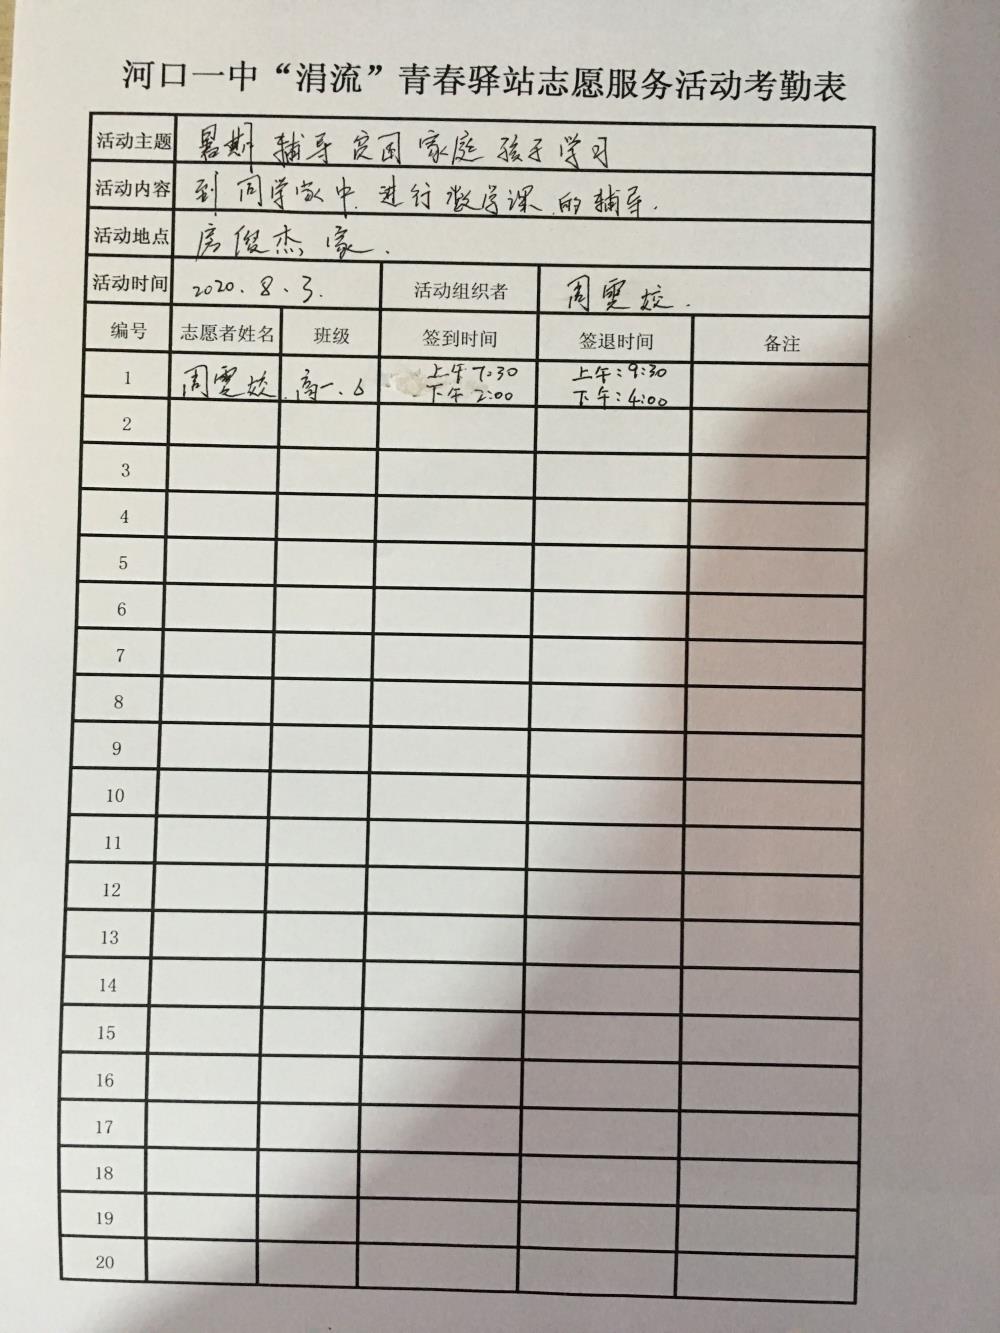 河口一中“涓流”青春驿站志愿服务活动考勤表
活动主题 暑期 辅导贫困家庭孩子学习
活动内容 到同学家中.进行数学课.的辅导.
活动地点 房俊杰家.
活动时间 2020.8.3. 活动组织者 周雯姣.
编号 志愿者姓名 班级 签到时间 签退时间 备注
1 周雯姣. 高一.6 上午7:30 上午:9:30
下午2:00 下午:4:00
2
3
4
5
6
7
8
9
10
11
12
13
14
15
16
17
18
19
20